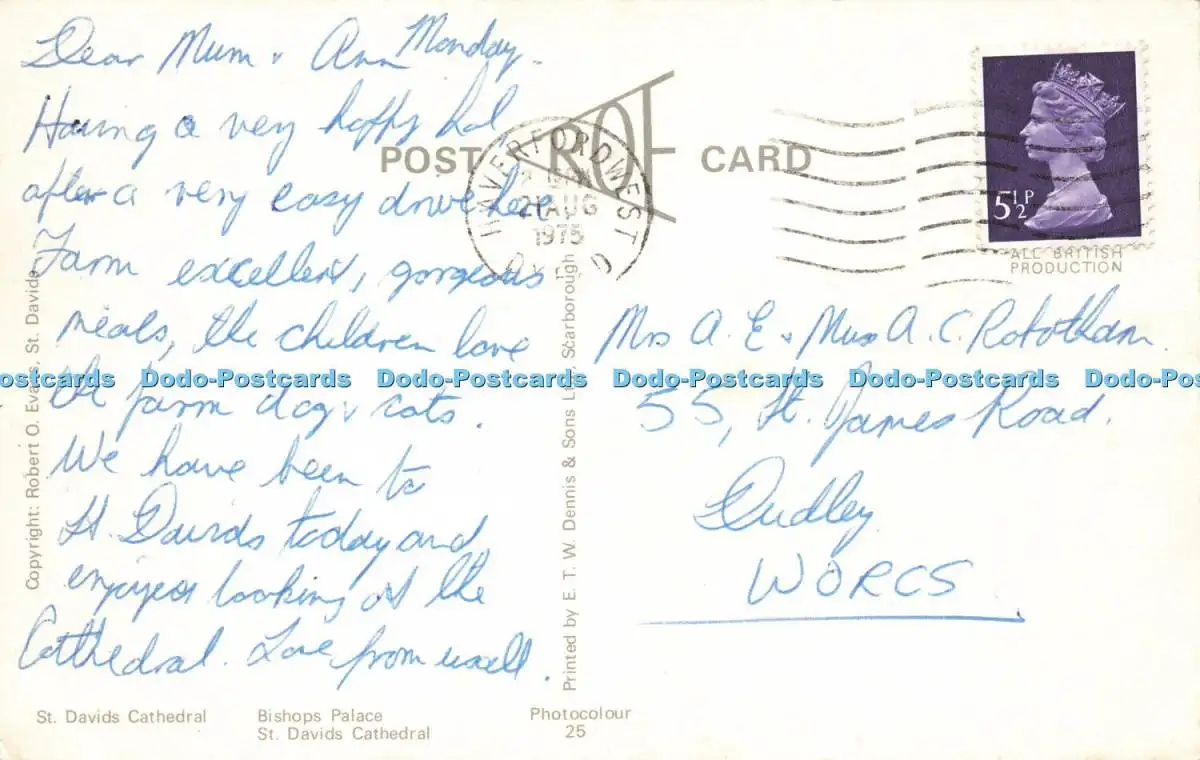 Dear Mum & Ann Monday.
Having a very happy hol
after a very easy drive here
Farm excellent, gorgeous
meals, the children love
the farm dog & cats.
We have been to
St. Davids today and
enjoyed looking at the
Cathedral. Love from us all.
POST CARD
HAVERFORDWEST
21 AUG
1973
5½P
ALL BRITISH
PRODUCTION
Mrs A. E. & Miss A. C.
55, St. James Road.
Dudley
WORCS
Dodo-Postcards Dodo-Postcards Dodo-Postcards Dodo-Postcards Dodo-Postcards Dodo-Postcards
Copyright: Robert O. Evans, St. Davids
Printed by E. T. W. Dennis & Sons Ltd., Scarborough
St. Davids Cathedral
Bishops Palace
St. Davids Cathedral
Photocolour
25